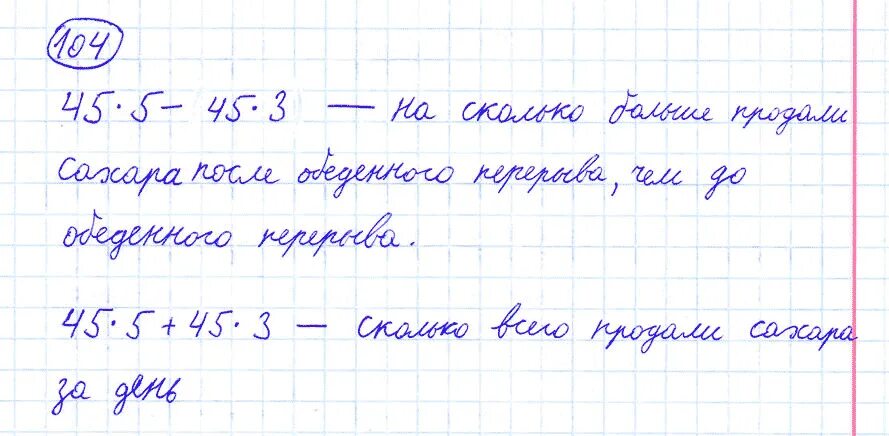 104
45·5 - 45·3 — на сколько больше продали
сахара после обеденного перерыва, чем до
обеденного перерыва.
45·5 + 45·3 — сколько всего продали сахара
за день